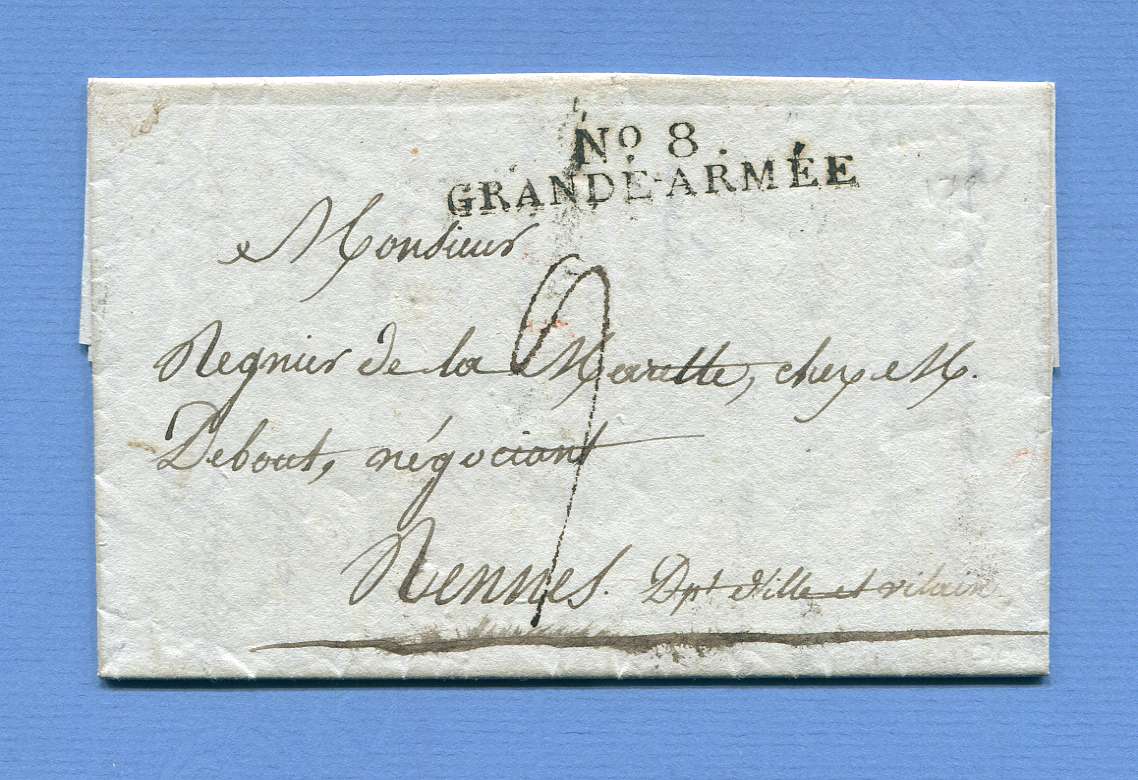 No 8.
GRANDE-ARMÉE
Monsieur
Regnier de la Marette, chez M.
Debout, négociant
9
Rennes. Dpt d'ille et vilaine